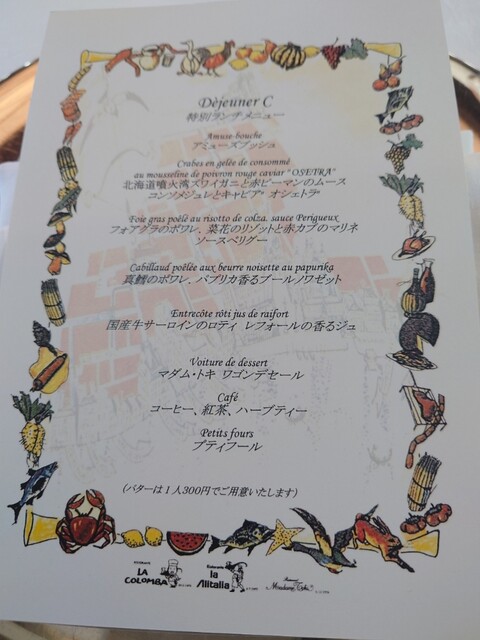 Déjeuner C
特別ランチメニュー
Amuse-bouche
アミューズブッシュ
Crabes en gelée de consommé
au mousseline de poivron rouge caviar "OSETRA"
北海道噴火湾ズワイガニと赤ピーマンのムース
コンソメジュレとキャビア" オシェトラ"
Foie gras poêlé au risotto de colza. sauce Perigueux
フォアグラのポワレ、菜花のリゾットと赤カブのマリネ
ソースペリグー
Cabillaud poêlée aux beurre noisette au papurika
真鱈のポワレ、パプリカ香るブールノワゼット
Entrecôte rôti jus de raifort
国産牛サーロインのロティ レフォールの香るジュ
Voiture de dessert
マダム・トキ ワゴンデセール
Café
コーヒー、紅茶、ハーブティー
Petits fours
プティフール
(バターは1人300円でご用意いたします)
LA COLOMBA
la Alitalia
Madame Toki